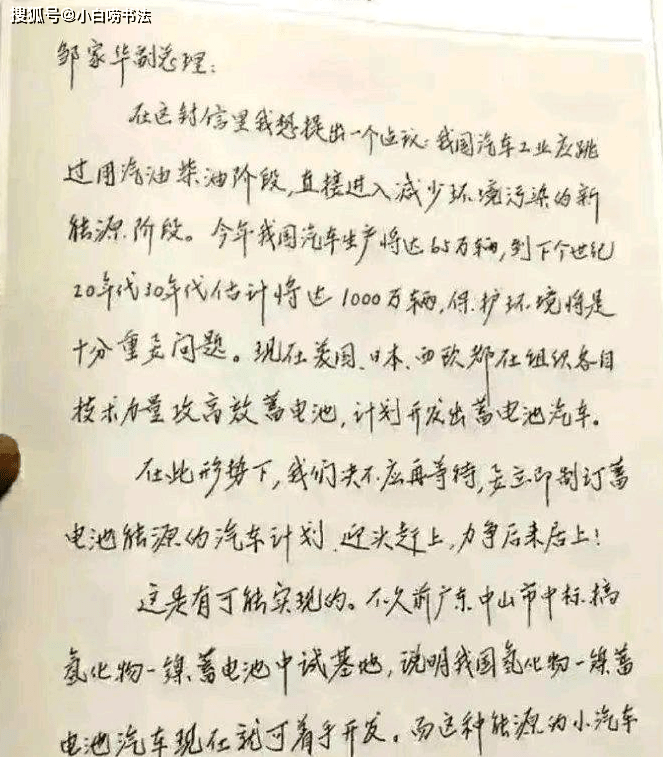 搜狐号@小白唠书法
邹家华副总理：
在这封信里我想提出一个建议：我国汽车工业应跳
过用汽油柴油阶段，直接进入减少环境污染的新
能源阶段。今年我国汽车生产将达65万辆，到下个世纪
20年代30年代估计将达1000万辆，保护环境将是
十分重要问题。现在美国、日本、西欧都在组织各自
技术力量攻高效蓄电池，计划开发出蓄电池汽车。
在此形势下，我们决不应再等待，要立即制订蓄
电池能源的汽车计划，迎头赶上，力争后来居上！
这是有可能实现的。不久前广东中山市中标搞
氢化物—镍蓄电池中试基地，说明我国氢化物—镍蓄
电池汽车现在就可着手开发。而这种能源为小汽车